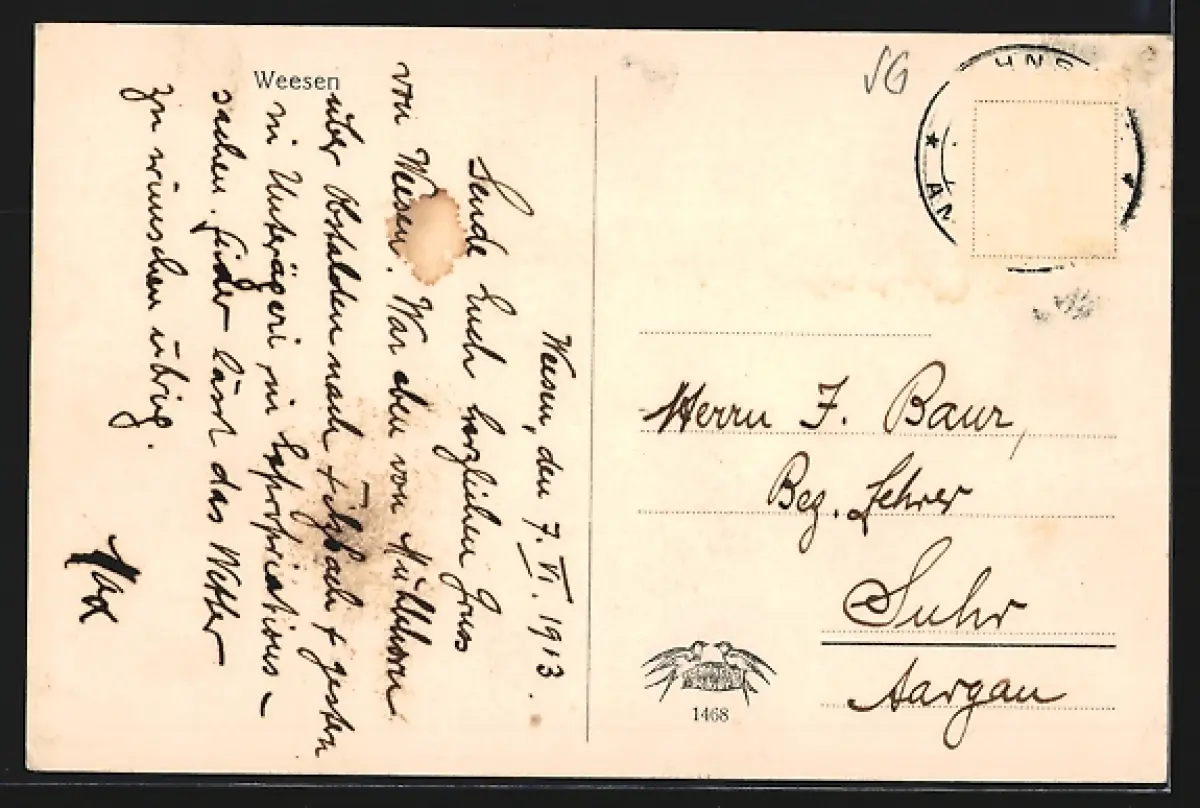 Weesen
Weesen, den 7. VI. 1913.
Sende Euch herzlichen Gruss
von Weesen. War eben von Mühlehorn
über Obstalden nach Filzbach + gestern
in Unterägeri in Expropriations-
sachen. Leider lässt das Wetter
zu wünschen übrig.
SG
Herrn J. Baur,
Bez. Lehrer
Suhr
Aargau
1468